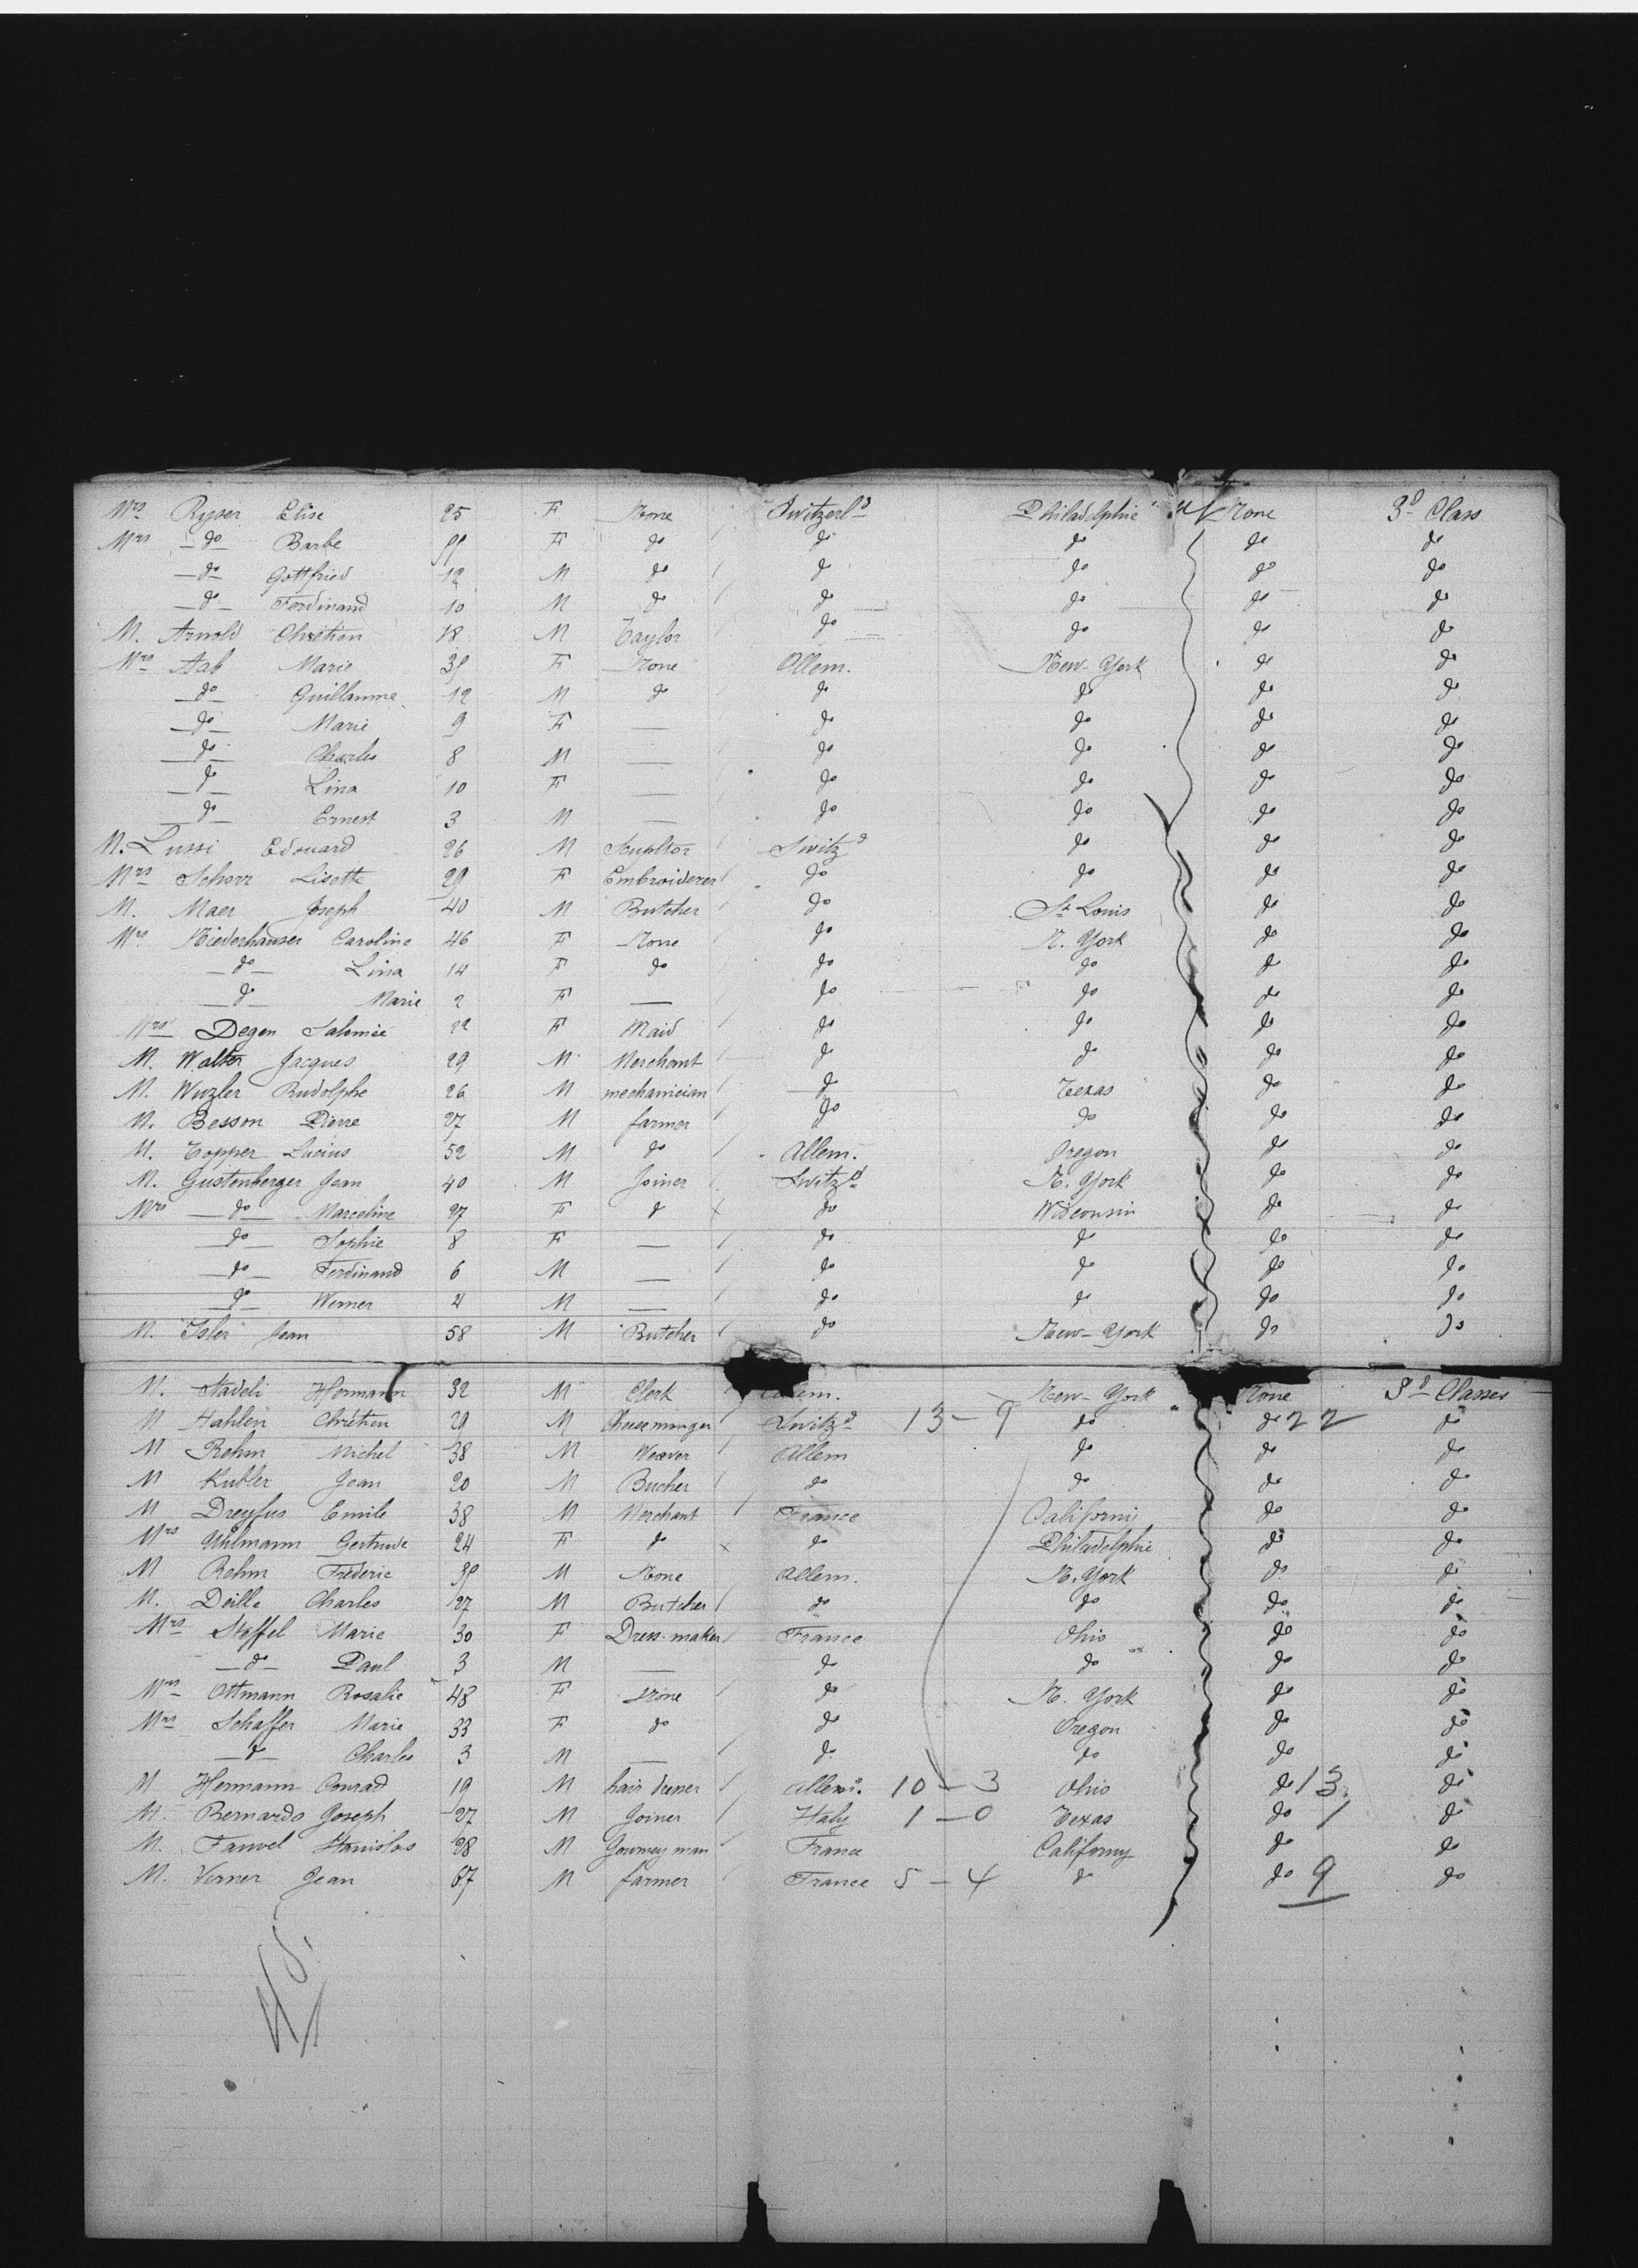 Mrs Ryser Elise 25 F None Switzerld Philadelphie None 3d Class
Mrs do Barbe 55 F do do do do do
do Gottfried 12 M do do do do do
do Ferdinand 10 M do do do do do
M. Arnold Chrétien 18 M Taylor do do do do
Mrs Aab Marie 35 F None Allem. New-York do do
do Guillaume 12 M do do do do do
do Marie 9 F — do do do do
do Charles 8 M — do do do do
do Lina 10 F — do do do do
do Ernest 3 M — do do do do
M. Lussi Edouard 26 M Sculptor Switzd do do do
Mrs Schorr Lisette 29 F Embroiderer do do do do
M. Maer Joseph 40 M Butcher do St Louis do do
Mrs Niederhauser Caroline 46 F None do N. York do do
do Lina 14 F do do do do do
do Marie 2 F — do do do do
Mrs Degen Salomée 22 F Maid do do do do
M. Walter Jacques 29 M Merchant do do do do
M. Wuzler Rudolphe 26 M mechanician do Texas do do
M. Besson Pierre 27 M farmer do do do do
M. Topper Lucius 52 M do Allem. Oregon do do
M. Gustenberger Jean 40 M Joiner Switzd N. York do do
Mrs do Marceline 27 F do x do Wisconsin do do
do Sophie 8 F — do do do do
do Ferdinand 6 M — do do do do
do Werner 4 M — do do do do
M. Isler Jean 58 M Butcher do New-York do do
M. Stadeli Hermann 32 M Clerk Allem. New-York None 3d Classes
M Hahlen Chrétien 29 M Cheesemonger Switzd 13-9 do do 22 do
M Rehm Michel 38 M Weaver Allem do do do
M Kubler Jean 20 M Bucher do do do do
M Dreyfus Emile 38 M Merchant France Californy do do
Mrs Uhlmann Gertrude 24 F do x do Philadelphie do do
M Rehm Frédéric 35 M None Allem. N. York do do
M. Deille Charles 27 M Butcher do do do do
Mrs Steffel Marie 30 F Dress-maker France Ohio do do
do Paul 3 M — do do do do
Mrs Ottmann Rosalie 48 F None do N. York do do
Mrs Schaffer Marie 33 F do do Oregon do do
do Charles 3 M — do do do do
M Hermann Conrad 19 M hair dresser Allem. 10-3 Ohio do 13 do
M. Bernardo Joseph 27 M Joiner Italy 1-0 Texas do 1 do
M. Fauvel Stanislas 28 M Journey man France Californy do do
M. Verner Jean 67 M farmer France 5-4 do do 9 do